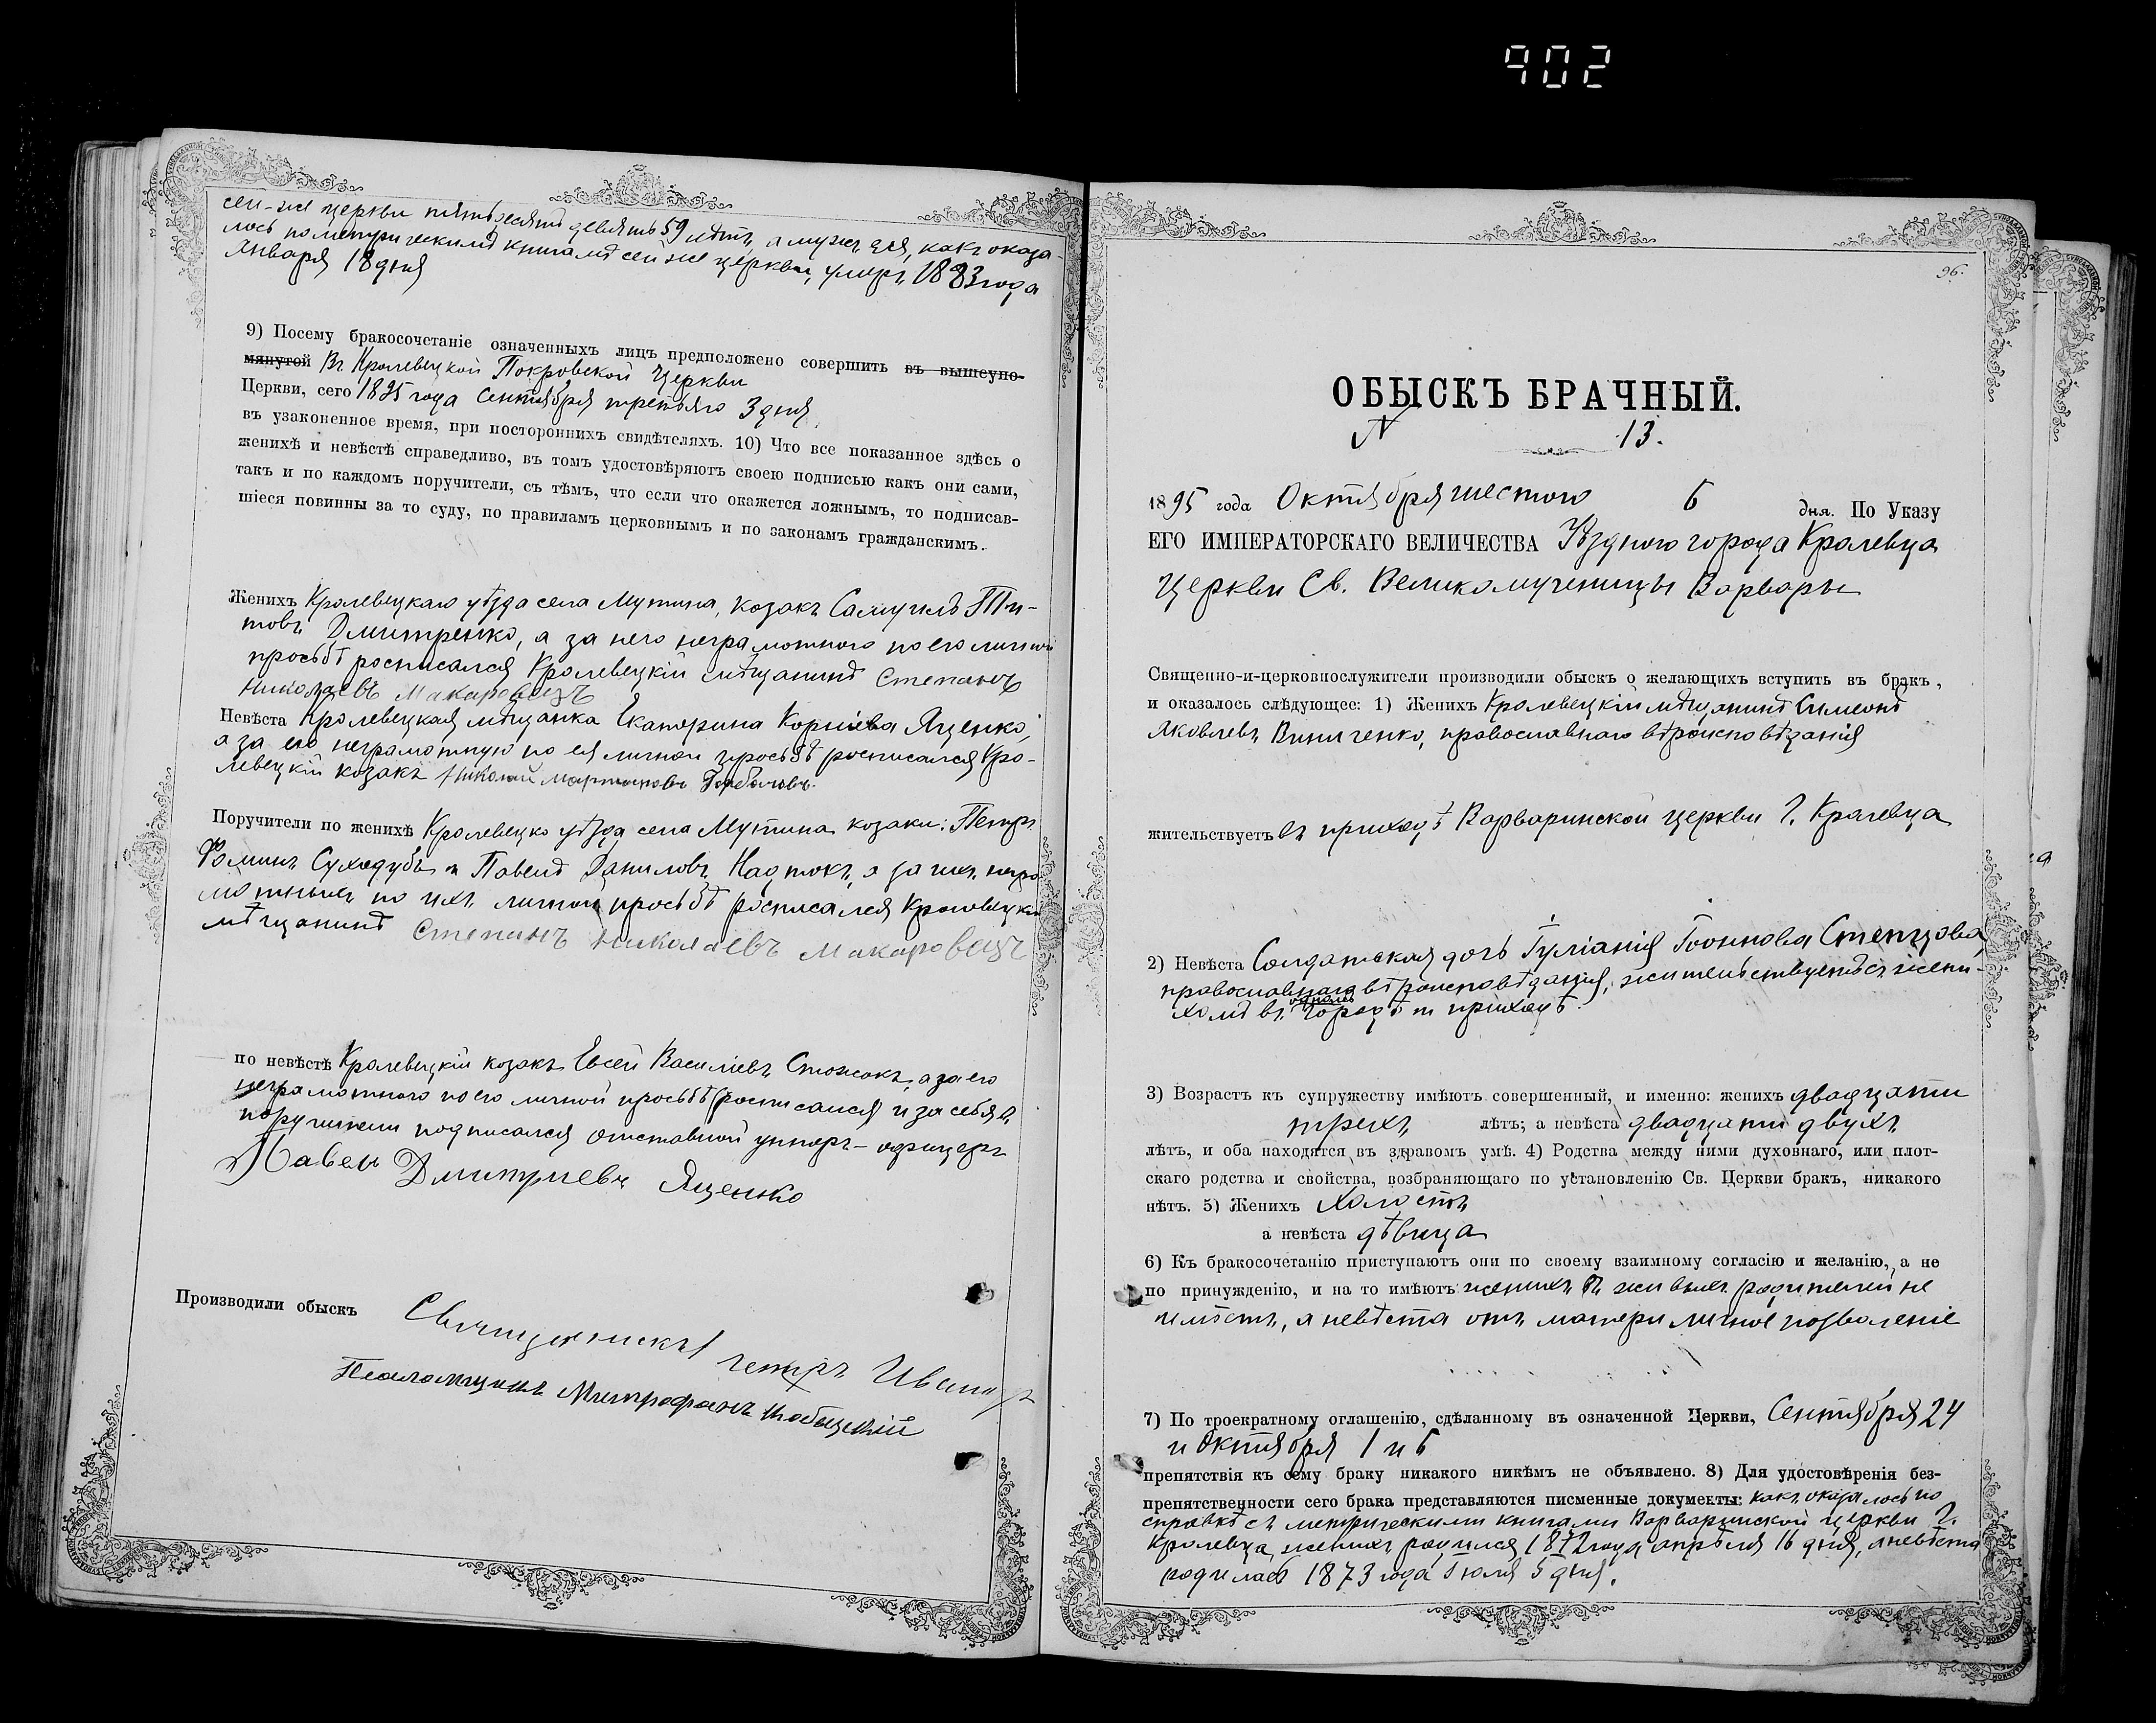 902
сей-же церкви пятьдесятъ девять 59 лѣтъ, а мужъ ея, какъ оказа-
лось по метрическимъ книгамъ сей же церкви, умеръ 1883 года
Января 18 дня
9) Посему бракосочетаніе означенныхъ лицъ предположено совершить въ вышеупо-
мянутой Въ Кролевецкой Покровской Церкви
Церкви, сего 1895 года Сентября третьяго 3 дня,
въ узаконенное время, при постороннихъ свидѣтеляхъ. 10) Что все показанное здѣсь о
женихѣ и невѣстѣ справедливо, въ томъ удостовѣряютъ своею подписью какъ они сами,
такъ и по каждомъ поручители, съ тѣмъ, что если что окажется ложнымъ, то подписав-
шіеся повинны за то суду, по правиламъ церковнымъ и по законамъ гражданскимъ.
Женихъ Кролевецкаго уѣзда села Мутина, козакъ Самуилъ Ти-
товъ Дмитренко, а за него неграмотного по его личной
просьбѣ росписался Кролевецкій мѣщанинъ Степанъ
Николаевъ Макаровецъ
Невѣста Кролевецкая мѣщанка Екатерина Корніева Яценко,
а за ею неграмотную по ея личной просьбѣ росписался Кро-
левецкій козакъ Николай Мартиновъ
Поручители по женихѣ Кролевецко уѣзда села Мутина козаки: Петръ
Фоминъ Суходубъ и Павелъ Даниловъ Надтокъ, а за ихъ негра
мотныхъ по ихъ личной просьбѣ росписался Кролевецкій
мѣщанинъ Степанъ Николаевъ Макаровецъ
по невѣстѣ Кролевецкій козакъ Евсей Василіевъ Стожокъ, а за его
неграмотного по его личной просьбѣ росписался и за себя въ
поручители подписался отставной унторъ-офицеръ
Павелъ Дмитриевъ Яценко
Производили обыскъ
Священникъ Петръ
Псаломщикъ Митрофанъ
96.
ОБЫСКЪ БРАЧНЫЙ.
N 13.
1895 года Октября шестого 6 дня. По Указу
ЕГО ИМПЕРАТОРСКАГО ВЕЛИЧЕСТВА Уѣздного города Кролевца
Церкви Св. Великомученицы Варвары
Священно-и-церковнослужители производили обыскъ о желающихъ вступить въ бракъ,
и оказалось слѣдующее: 1) Женихъ Кролевецкій мѣщанинъ Симеонъ
Яковлевъ Виниченко, православнаго вѣроисповѣданія
жительствуетъ въ приходѣ Варваринской церкви г. Кролевца
2) Невѣста Солдатская дочь Іуліанія Іоаннова Степцова,
православнаго вѣроисповѣданія, жительствуетъ съ жени-
хомъ въ одномъ городѣ и приходѣ.
3) Возрастъ къ супружеству имѣютъ совершенный, и именно: женихъ двадцати
трехъ лѣтъ; а невѣста двадцати двухъ
лѣтъ, и оба находятся въ здравомъ умѣ. 4) Родства между ними духовнаго, или плот-
скаго родства и свойства, возбраняющаго по установленію Св. Церкви бракъ, никакого
нѣтъ. 5) Женихъ Холостъ
а невѣста дѣвица
6) Къ бракосочетанію приступаютъ они по своему взаимному согласію и желанію, а не
по принужденію, и на то имѣютъ женихъ въ живыхъ родителей не
имѣетъ, а невѣста отъ матери личное позволеніе
7) По троекратному оглашенію, сдѣланному въ означенной Церкви, Сентября 24
и Октября 1 и 6
препятствія къ сему браку никакого никѣмъ не объявлено. 8) Для удостовѣренія без-
препятственности сего брака представляются писменные документы: какъ оказалось по
справкѣ съ метрическими книгами Варваринской церкви г.
Кролевца, женихъ родился 1872 года апрѣля 16 дня, а невѣста
родилась 1873 года Іюля 5 дня.